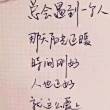 总会遇到一个人
那天阳光还暖
时间刚好
人也还好
就这么爱上